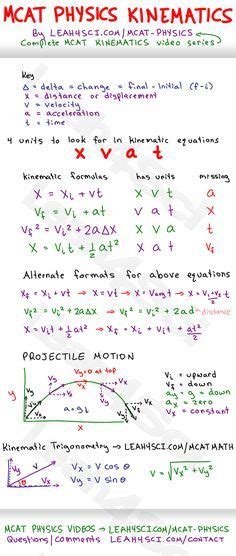 MCAT PHYSICS KINEMATICS
By LEAH4SCI.COM/MCAT-PHYSICS
Complete MCAT KINEMATICS video series
Key
Δ = delta = change = final - initial (f-i)
x = distance or displacement
v = velocity
a = acceleration
t = time
4 units to look for in kinematic equations
x v a t
kinematic formulas has units missing
X = Xᵢ + vt X v t a
Vf = Vᵢ + at v a t X
Vf² = Vᵢ² + 2aΔX X v a t
X = Vᵢt + ½at² X a t v
Alternate formats for above equations
Xf = Xᵢ + vt → X = vt → X = Vavg t → X = (Vᵢ + Vf)/2 t
Vf² = Vᵢ² + 2aΔX → Vf² = Vᵢ² + 2ad→distance
X = Vᵢt + ½at² → Xf = Xᵢ + Vᵢt + at²/2
PROJECTILE MOTION
Vy=0 at top
a = g↓
y
x
Vᵢ = upward
Vf = down
ay = g = down
ax = zero
Vx = constant
Kinematic Trigonometry → LEAH4SCI.COM/MCATMATH
Vx = V cos θ
Vy = V sin θ
V = √Vx² + Vy²
MCAT PHYSICS VIDEOS → LEAH4SCI.COM/MCAT-PHYSICS
Questions/comments LEAH4SCI.COM/CONTACT